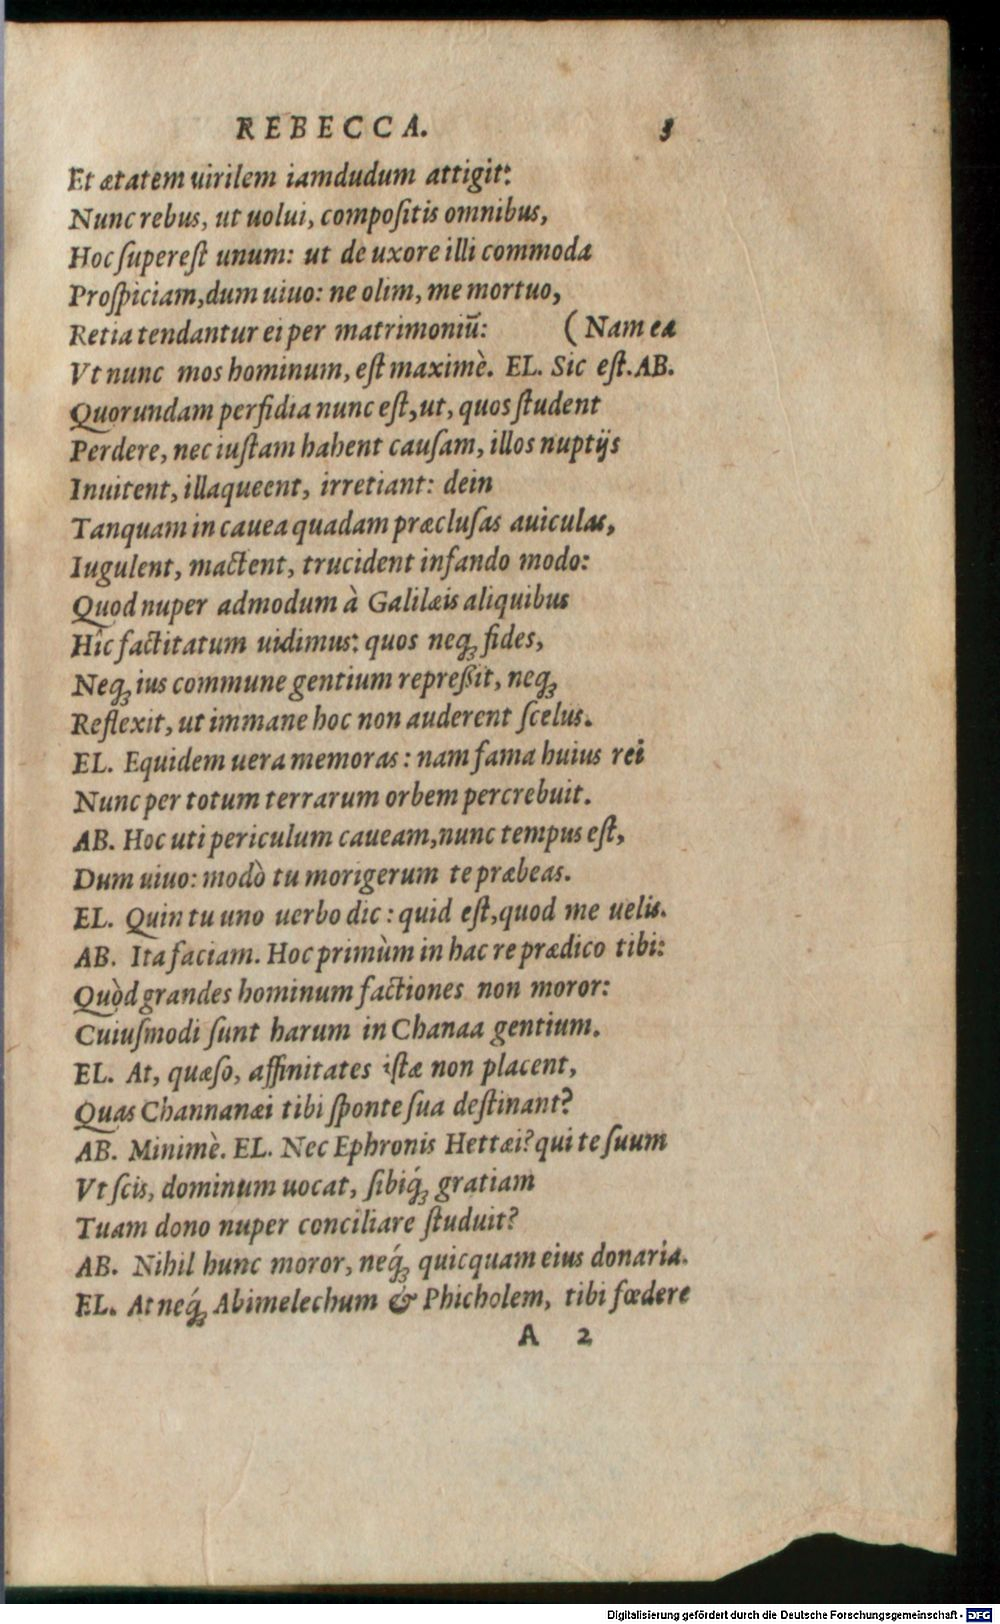 REBECCA. 3
Et ætatem uirilem iamdudum attigit:
Nunc rebus, ut uolui, compoſitis omnibus,
Hoc ſupereſt unum: ut de uxore illi commoda
Proſpiciam, dum uiuo: ne olim, me mortuo,
Retia tendantur ei per matrimoniũ: (Nam ea
Vt nunc mos hominum, eſt maximè. EL. Sic eſt. AB.
Quorundam perfidia nunc eſt, ut, quos ſtudent
Perdere, nec iuſtam habent cauſam, illos nuptijs
Inuitent, illaqueent, irretiant: dein
Tanquam in cauea quadam præcluſas auiculas,
Iugulent, mactent, trucident infando modo:
Quod nuper admodum à Galilæis aliquibus
Hîc factitatum uidimus: quos neqꝫ fides,
Neqꝫ ius commune gentium repreßit, neqꝫ
Reflexit, ut immane hoc non auderent ſcelus.
EL. Equidem uera memoras: nam fama huius rei
Nunc per totum terrarum orbem percrebuit.
AB. Hoc uti periculum caueam, nunc tempus eſt,
Dum uiuo: modò tu morigerum te præbeas.
EL. Quin tu uno uerbo dic: quid eſt, quod me uelis.
AB. Ita faciam. Hoc primùm in hac re prædico tibi:
Quòd grandes hominum factiones non moror:
Cuiuſmodi ſunt harum in Chanaa gentium.
EL. At, quæſo, affinitates iſtæ non placent,
Quas Channanæi tibi ſponte ſua deſtinant?
AB. Minimè. EL. Nec Ephronis Hettæi? qui te ſuum
Vt ſcis, dominum uocat, ſibiq́ꝫ gratiam
Tuam dono nuper conciliare ſtuduit?
AB. Nihil hunc moror, neq́ꝫ quicquam eius donaria.
EL. At neq́ꝫ Abimelechum & Phicholem, tibi fœdere
A 2
Digitalisierung gefördert durch die Deutsche Forschungsgemeinschaft - DFG